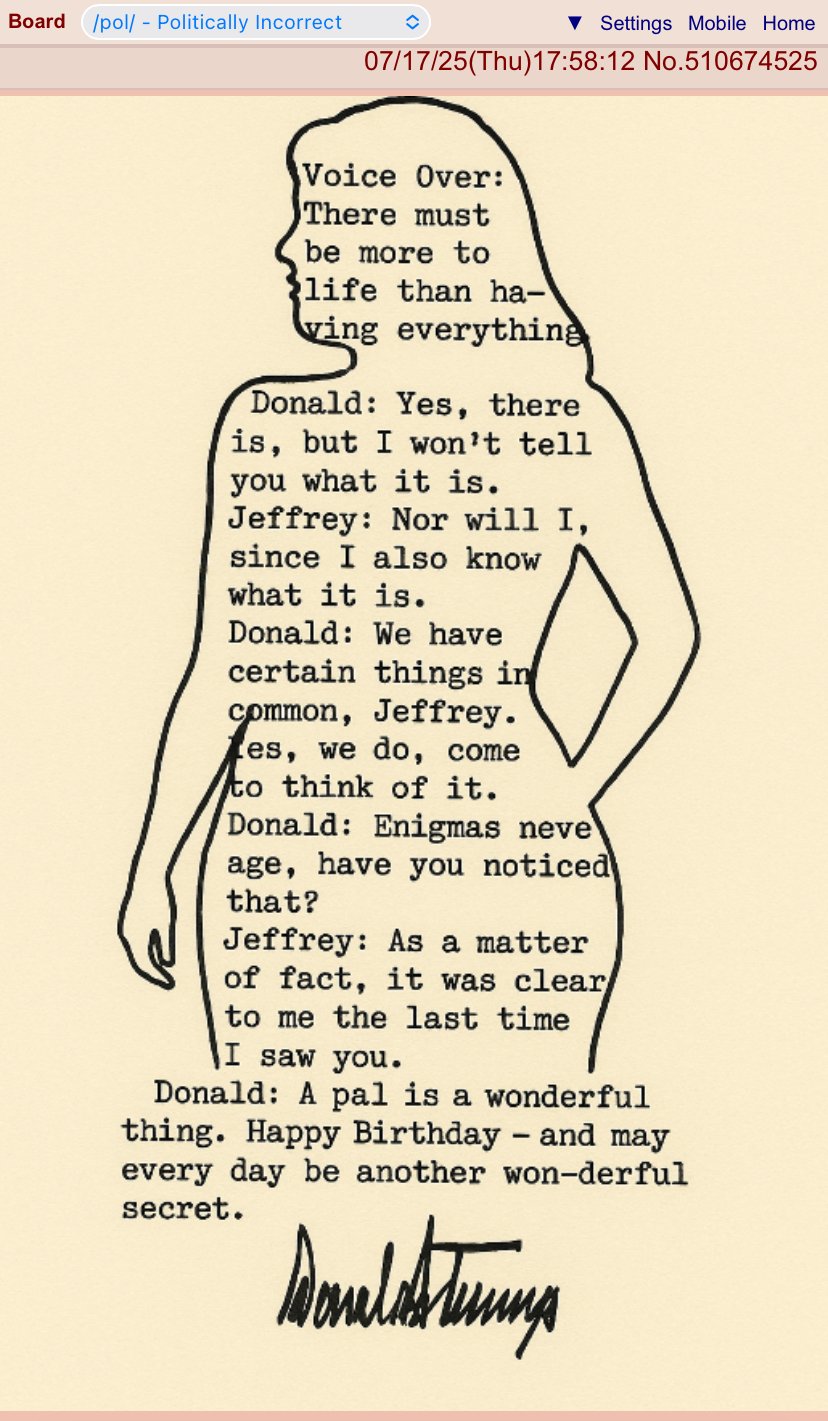 Board /pol/ - Politically Incorrect ▼ Settings Mobile Home
07/17/25(Thu)17:58:12 No.510674525
Voice Over:
There must
be more to
life than ha-
ving everything.
Donald: Yes, there
is, but I won't tell
you what it is.
Jeffrey: Nor will I,
since I also know
what it is.
Donald: We have
certain things in
common, Jeffrey.
Yes, we do, come
to think of it.
Donald: Enigmas neve
age, have you noticed
that?
Jeffrey: As a matter
of fact, it was clear
to me the last time
I saw you.
Donald: A pal is a wonderful
thing. Happy Birthday – and may
every day be another won-derful
secret.
Donald Trump